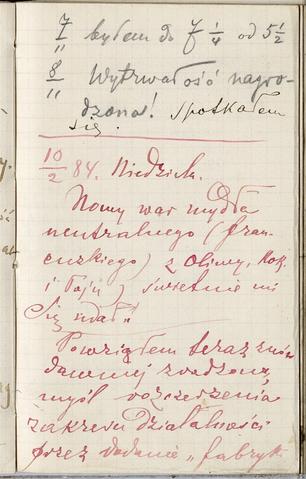 7/" byłem do 7 1/4 od 5 1/2
8/" Wytrwałość nagro-
dzona! spotkałem
się.
10/2 84. Niedziela.
Nowy war mydła
neutralnego (fran-
cuskiego) z oliwy, Kok.
i łoju, świetnie mi
się udał.
Powziąłem teraz znów
dawniej zrodzoną
myśl rozszerzenia
zakresu działalności
przez dodanie „fabryk